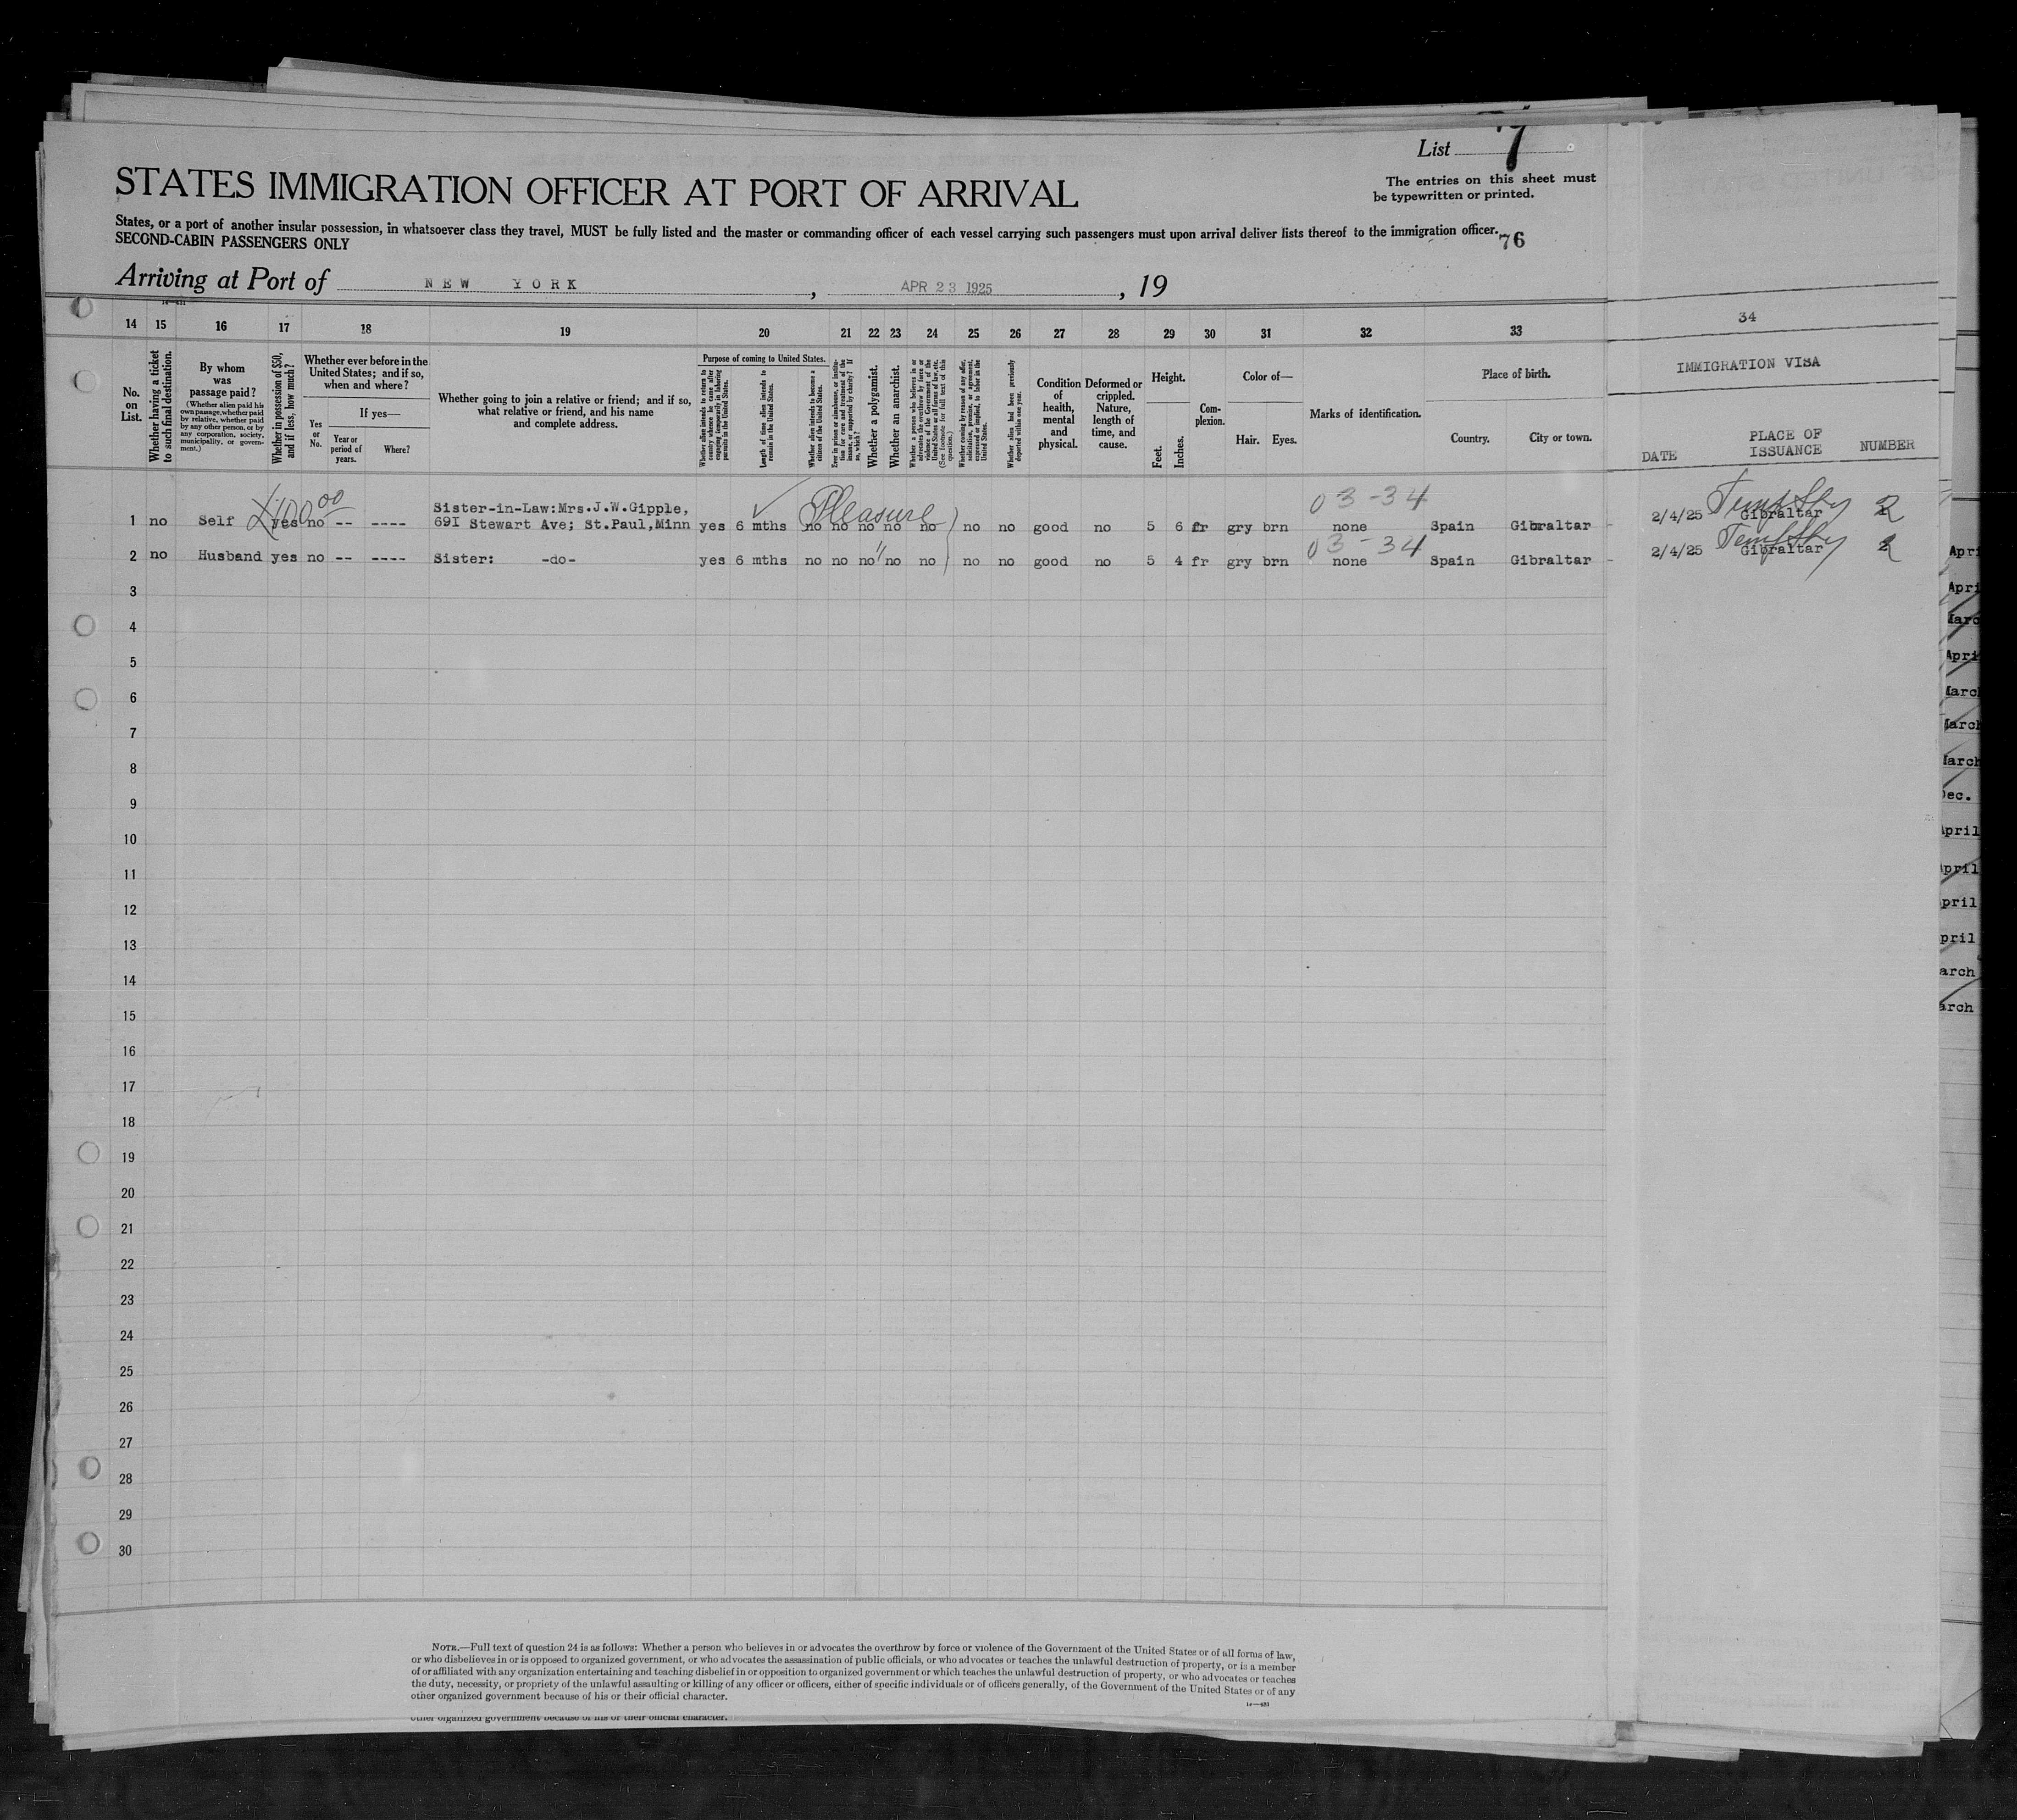 List 7
STATES IMMIGRATION OFFICER AT PORT OF ARRIVAL
The entries on this sheet must
be typewritten or printed.
States, or a port of another insular possession, in whatsoever class they travel, MUST be fully listed and the master or commanding officer of each vessel carrying such passengers must upon arrival deliver lists thereof to the immigration officer.
76
SECOND-CABIN PASSENGERS ONLY
Arriving at Port of NEW YORK, APR 23 1925, 19
14 15 16 17 18 19 20 21 22 23 24 25 26 27 28 29 30 31 32 33 34
No. on List.
Whether having a ticket to such final destination.
By whom was passage paid?
(Whether alien paid his own passage, whether paid by relative, whether paid by any other person, or by any corporation, society, municipality, or government.)
Whether in possession of $50, and if less, how much?
Whether ever before in the United States; and if so, when and where?
Yes or No.
If yes—
Year or period of years.
Where?
Whether going to join a relative or friend; and if so, what relative or friend, and his name and complete address.
Purpose of coming to United States.
Whether alien intends to return to country whence he came after engaging temporarily in laboring pursuits in the United States.
Length of time alien intends to remain in the United States.
Whether alien intends to become a citizen of the United States.
Ever in prison or almshouse, or institution for care and treatment of the insane, or supported by charity? If so, which?
Whether a polygamist.
Whether an anarchist.
Whether a person who believes in or advocates the overthrow by force or violence of the Government of the United States or all forms of law, etc. (See footnote for full text of this question.)
Whether coming by reason of any offer, solicitation, promise, or agreement, expressed or implied, to labor in the United States.
Whether alien had been previously deported within one year.
Condition of health, mental and physical.
Deformed or crippled. Nature, length of time, and cause.
Height.
Feet. Inches.
Complexion.
Color of—
Hair. Eyes.
Marks of identification.
Place of birth.
Country. City or town.
IMMIGRATION VISA
DATE PLACE OF ISSUANCE NUMBER
100.00 Pleasure 03-34
1 no Self yes no -- ---- Sister-in-Law:Mrs.J.W.Gipple,
69I Stewart Ave; St.Paul,Minn yes 6 mths no no no no no no no good no 5 6 fr gry brn none Spain Gibraltar - 2/4/25 Gibraltar 2
03-34
2 no Husband yes no -- ---- Sister: -do- yes 6 mths no no no" no no no no good no 5 4 fr gry brn none Spain Gibraltar - 2/4/25 Gibraltar 2
3
4
5
6
7
8
9
10
11
12
13
14
15
16
17
18
19
20
21
22
23
24
25
26
27
28
29
30
NOTE.—Full text of question 24 is as follows: Whether a person who believes in or advocates the overthrow by force or violence of the Government of the United States or of all forms of law,
or who disbelieves in or is opposed to organized government, or who advocates the assassination of public officials, or who advocates or teaches the unlawful destruction of property, or is a member
of or affiliated with any organization entertaining and teaching disbelief in or opposition to organized government or which teaches the unlawful destruction of property, or who advocates or teaches
the duty, necessity, or propriety of the unlawful assaulting or killing of any officer or officers, either of specific individuals or of officers generally, of the Government of the United States or of any
other organized government because of his or their official character.
other organized government because of his or their official character.